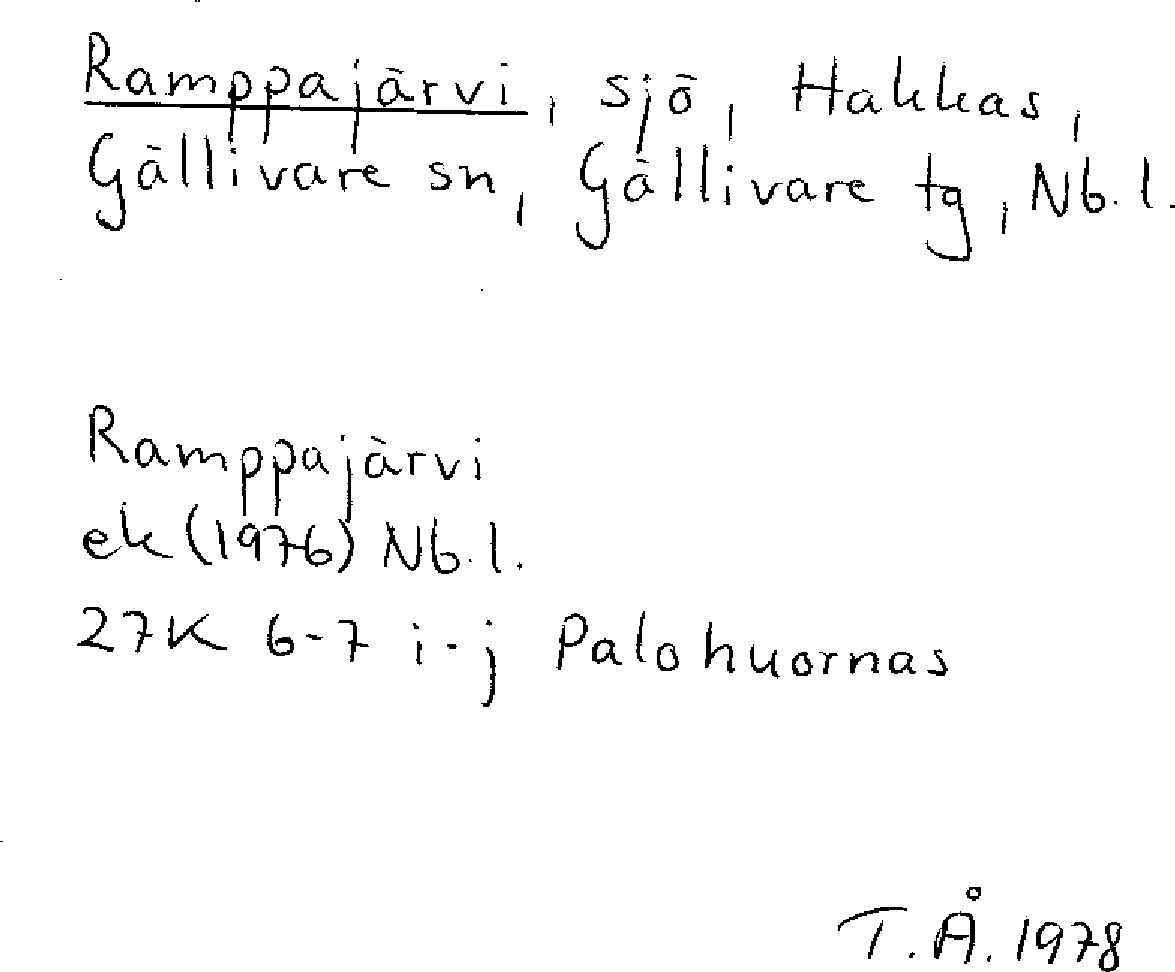 Ramppajärvi, sjö, Hakkas,
Gällivare sn, Gällivare tg, Nb.l.
Ramppajärvi
ek (1976) Nb.l.
27K 6-7 i-j Palohuornas
T.Å. 1978